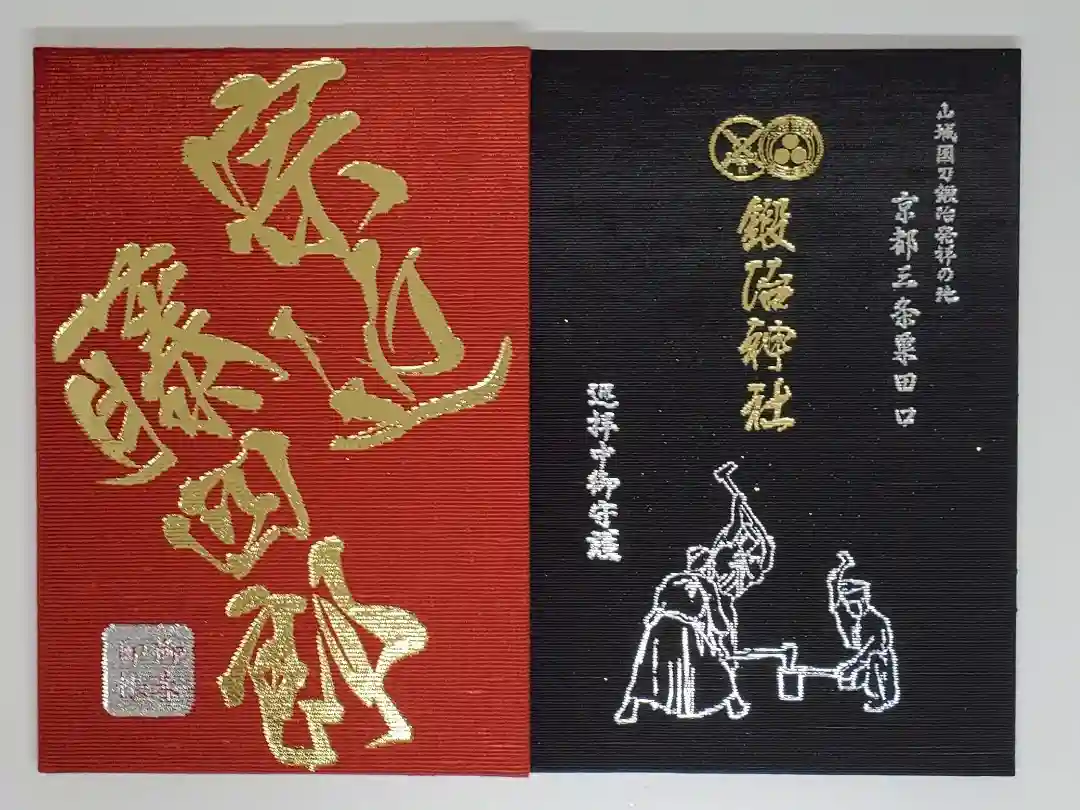 山城国刀鍛冶発祥の地
京都三条粟田口
鍛冶神社
巡拝中御守護
藤四郎
御朱
印帳